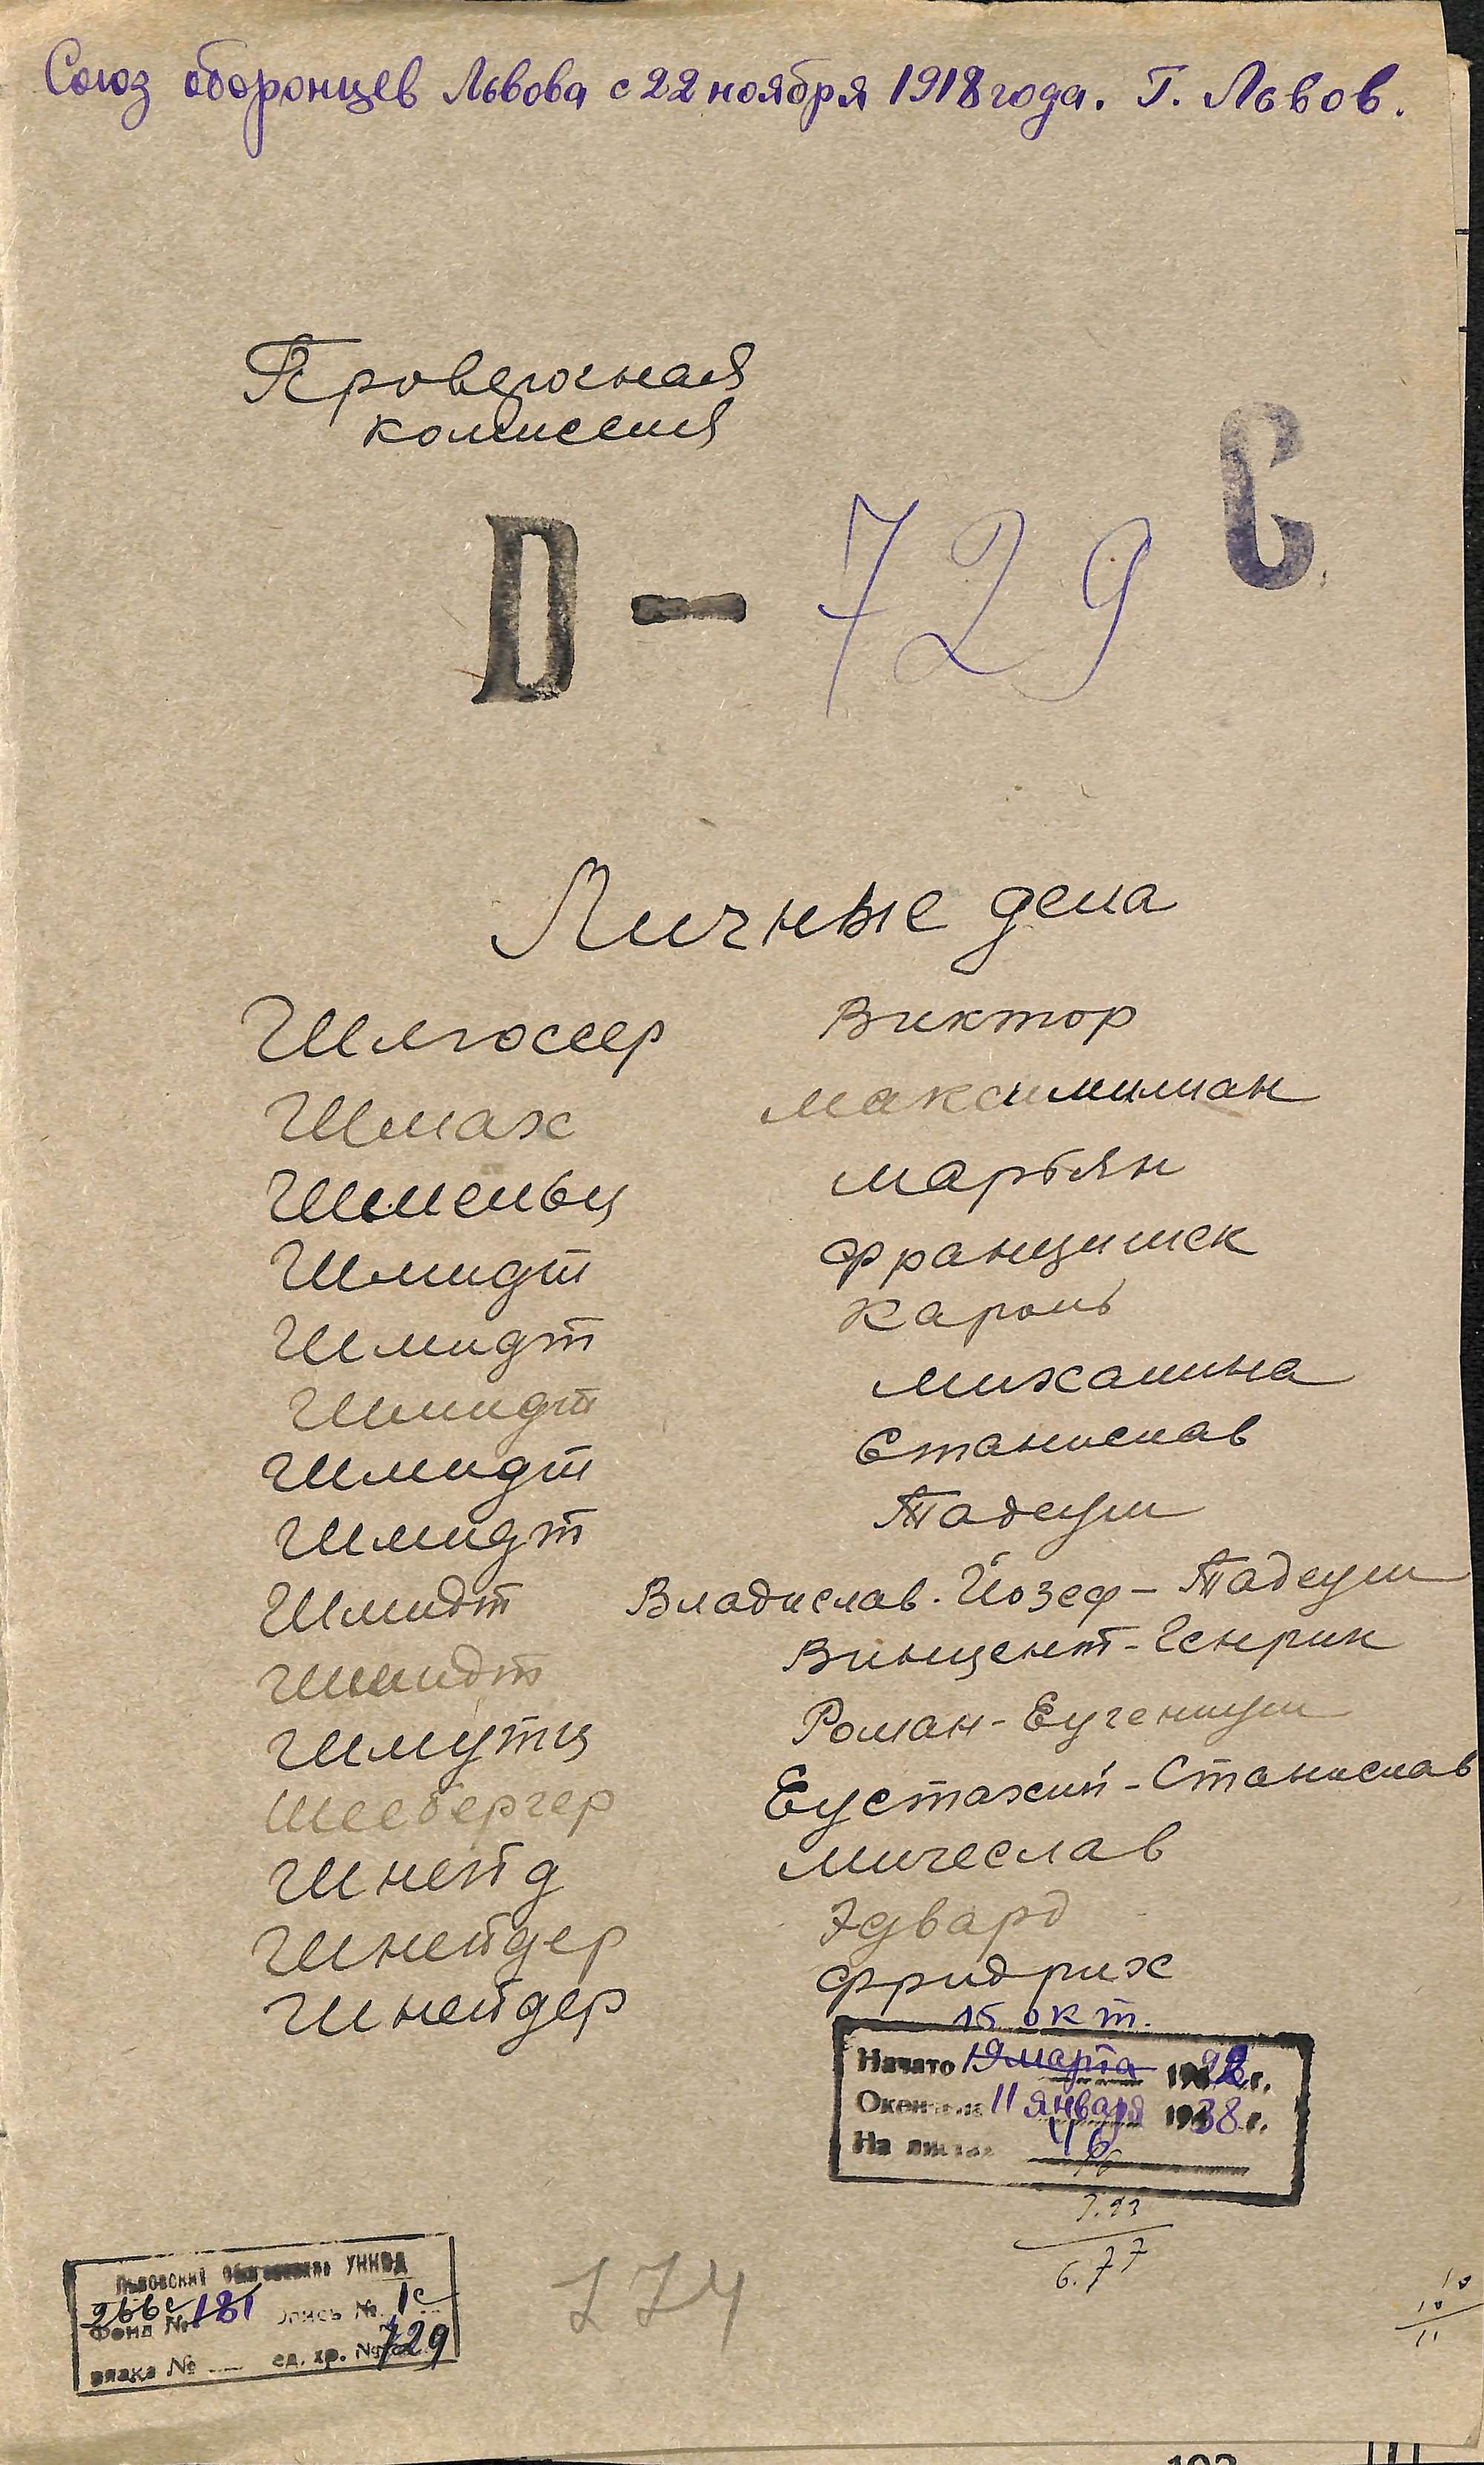 Союз оборонцев Львова с 22 ноября 1918 года. Г. Львов.
Проверочная
комиссия
С
D — 729
Личные дела
Шлюссер Виктор
Шмах Максимилиан
Шмельц Марьян
Шмидт Францишек
Шмидт Кароль
Шмидт Михалина
Шмидт Станислав
Шмидт Тадеуш
Шмидт Владислав-Йозеф-Тадеуш
Шмидт Винцент-Генрик
Шмутц Роман-Еугениуш
Шнебергер Еустахий-Станислав
Шнейд Мичеслав
Шнейдер Эдвард
Шнейдер Фридрих
15 окт.
Начато 19 марта 1928 г.
Окончено 11 января 1938 г.
На листах 46
6.77
Львовский УНКВД
266с
Фонд № 181 опись № 1с
вязка № ед. хр. № 729
10
10
11